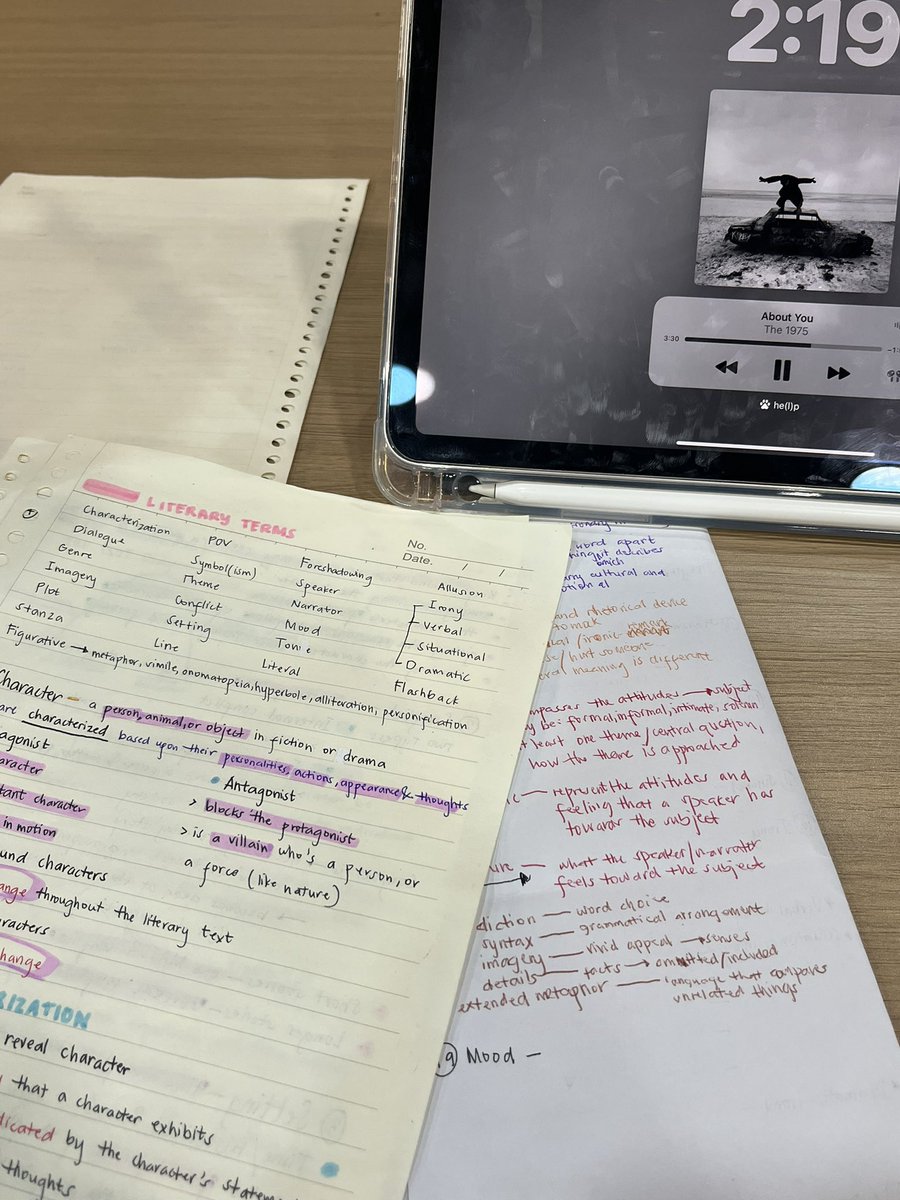 2:19
About You
The 1975
3:30
he(l)p
LITERARY TERMS
No.
Date. / /
Characterization POV Foreshadowing Allusion
Dialogue Symbol(ism) Speaker Irony
Genre Theme Narrator Verbal
Imagery Conflict Mood Situational
Plot Setting Tone Dramatic
Stanza Line Literal Flashback
Figurative → metaphor, simile, onomatopeia, hyperbole, alliteration, personification
Character - a person, animal, or object in fiction or drama
are characterized based upon their personalities, actions, appearance & thoughts
agonist
• Antagonist
aracter
> blocks the protagonist
tant character
> is a villain who's a person, or
in motion
a force (like nature)
und characters
ange throughout the literary text
aracters
change
RIZATION
reveal character
that a character exhibits
dicated by the character's statem
thoughts
word apart
describes
any cultural and
and rhetorical device
ical/ironic
/hurt someone
meaning is different
mpasses the attitudes → subject
be: formal, informal, intimate, solemn
t least one theme/central question,
how the theme is approached
— represent the attitudes and
feeling that a speaker has
towards the subject
— what the speaker/narrator
feels toward the subject
diction — word choice
syntax — grammatical arrangement
imagery — vivid appeal → senses
details — facts → ommitted/included
extended metaphor — language that compares
unrelated things
Mood -